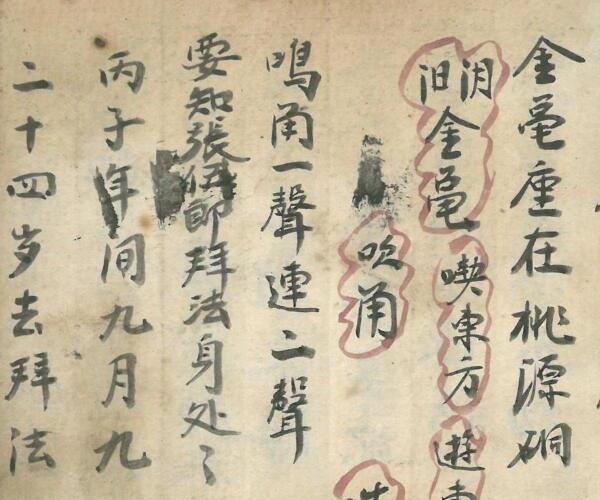 金黾座在桃源硐
金黾 喫東方 遊東
吹角
鳴角一聲連二聲
要知張伍郎拜法身处〻
丙子年间九月九
二十四岁去拜法